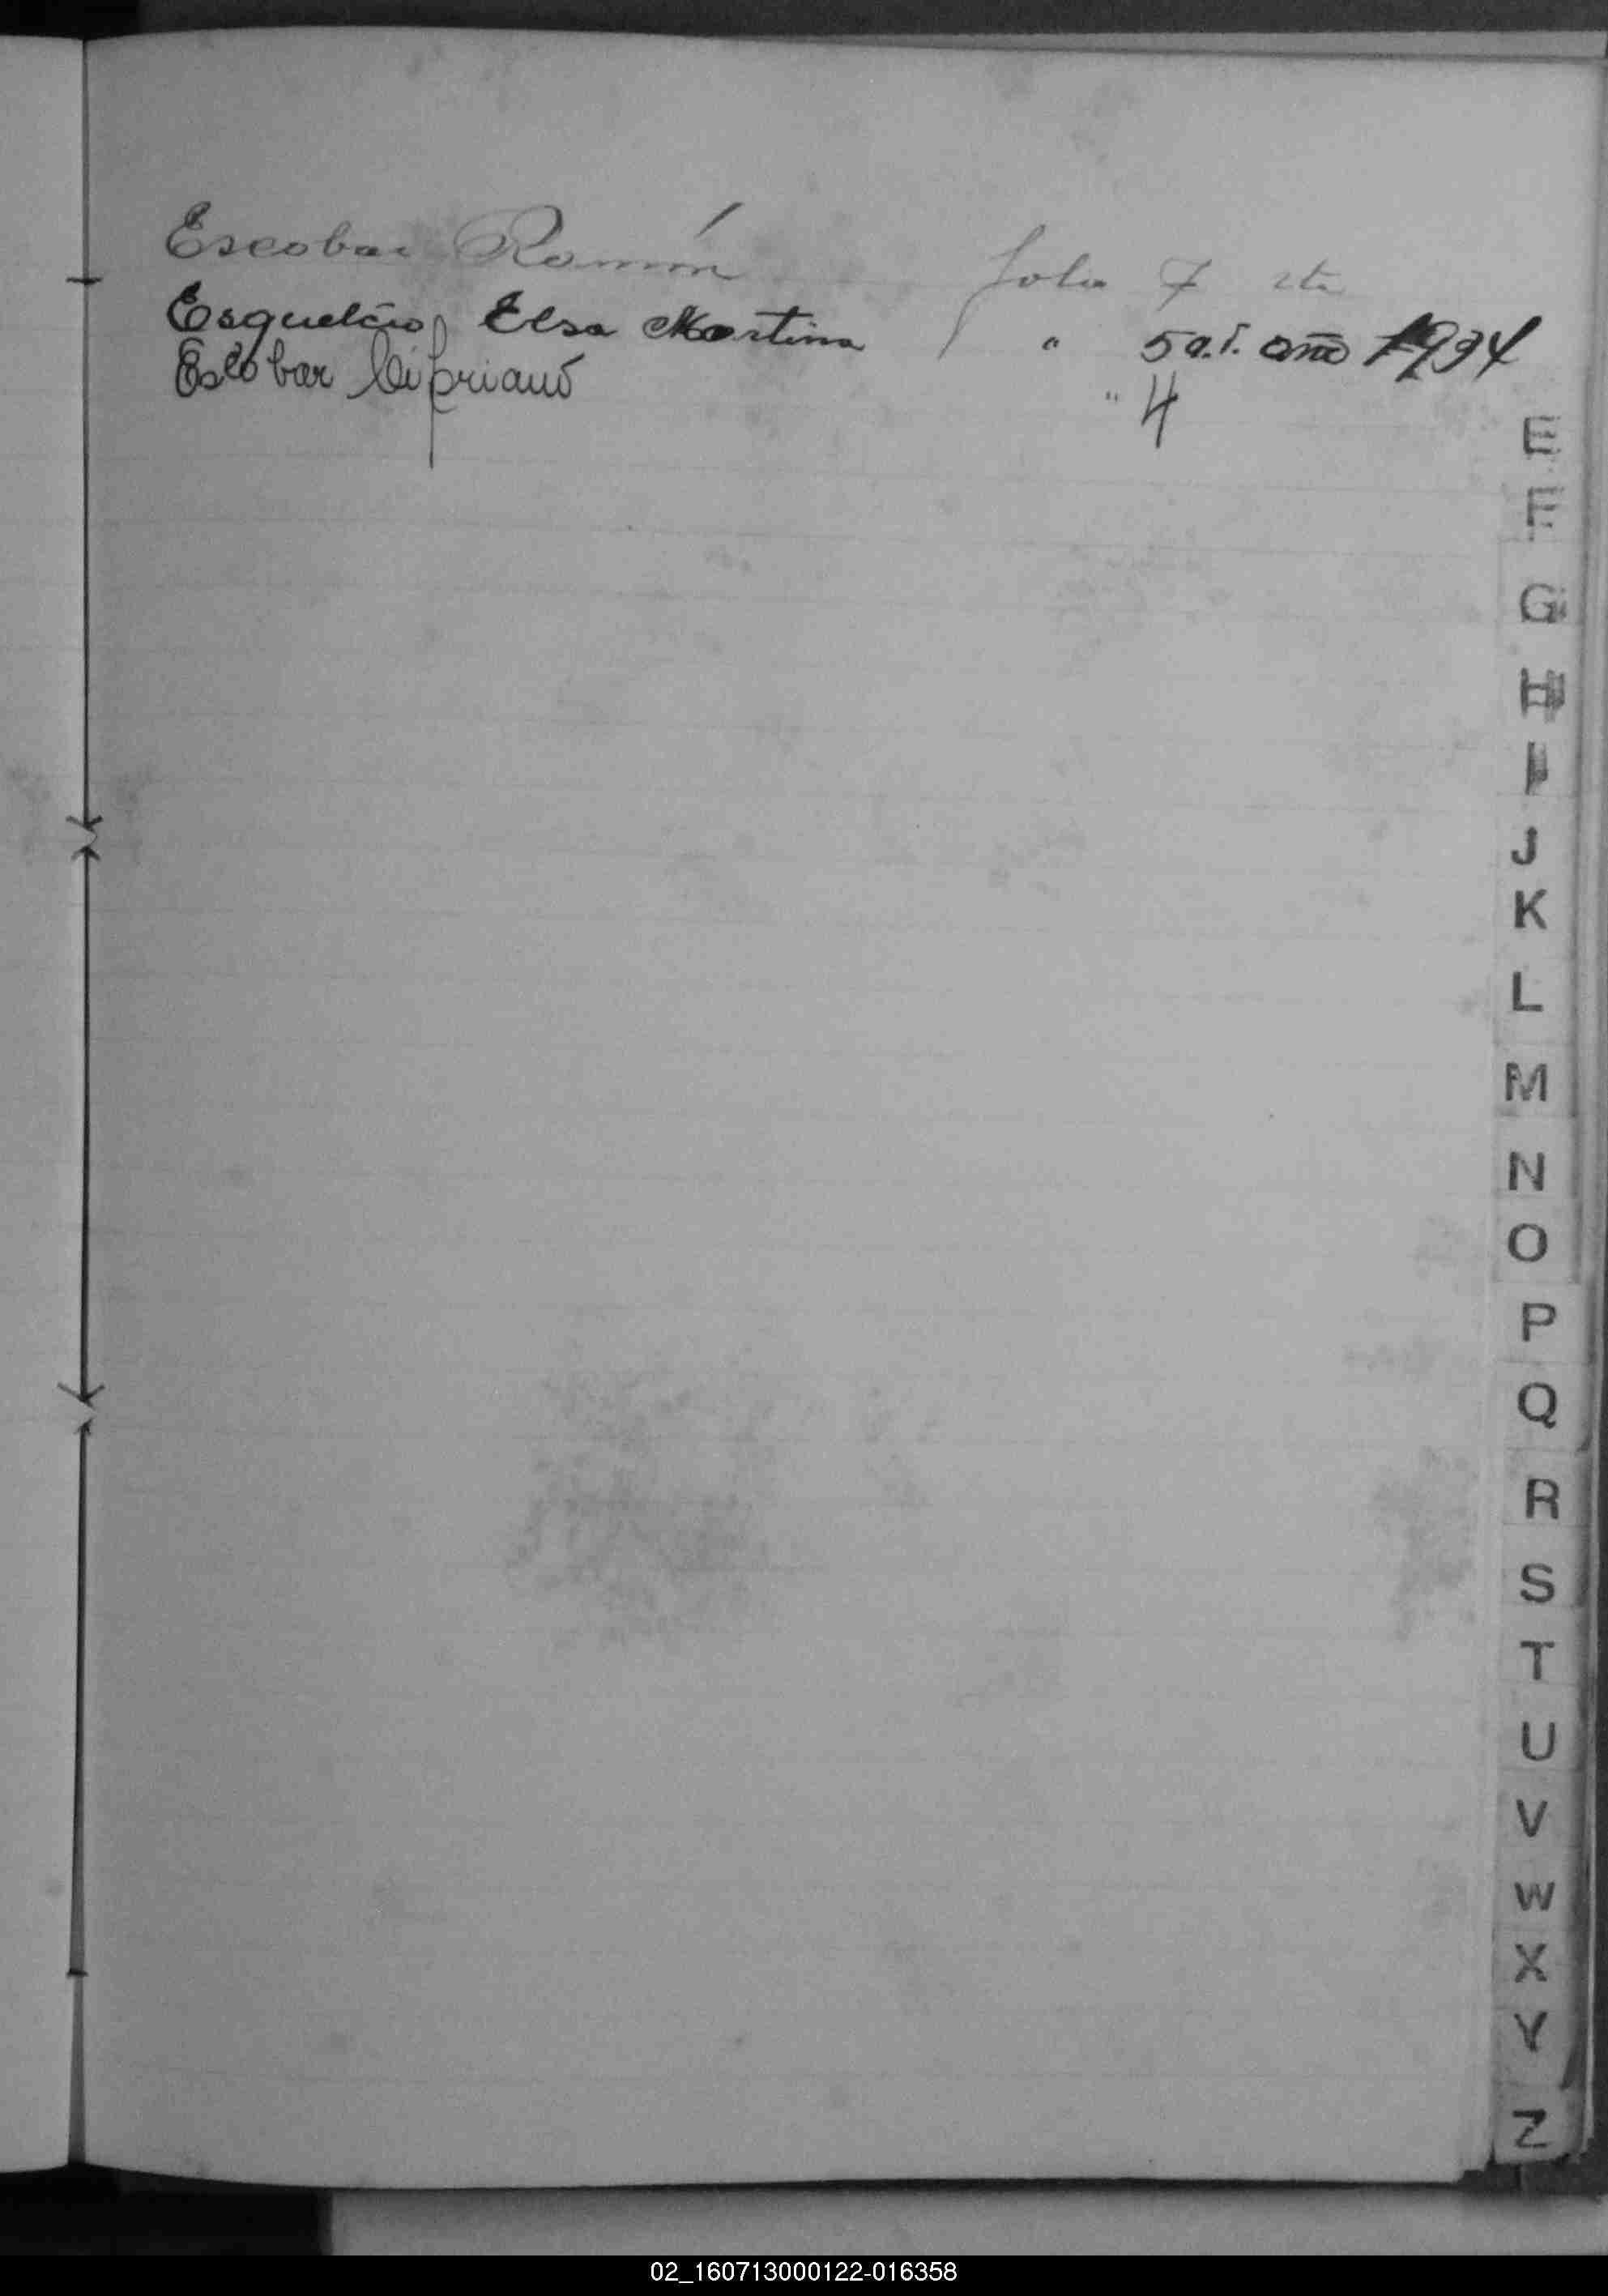 Escobar Ramón folio 7 vta
Elsa Martina " 5 a.t. año 1934
Escobar Cipriano " 4
E
F
G
H
I
J
K
L
M
N
O
P
Q
R
S
T
U
V
W
X
Y
Z
02_160713000122-016358